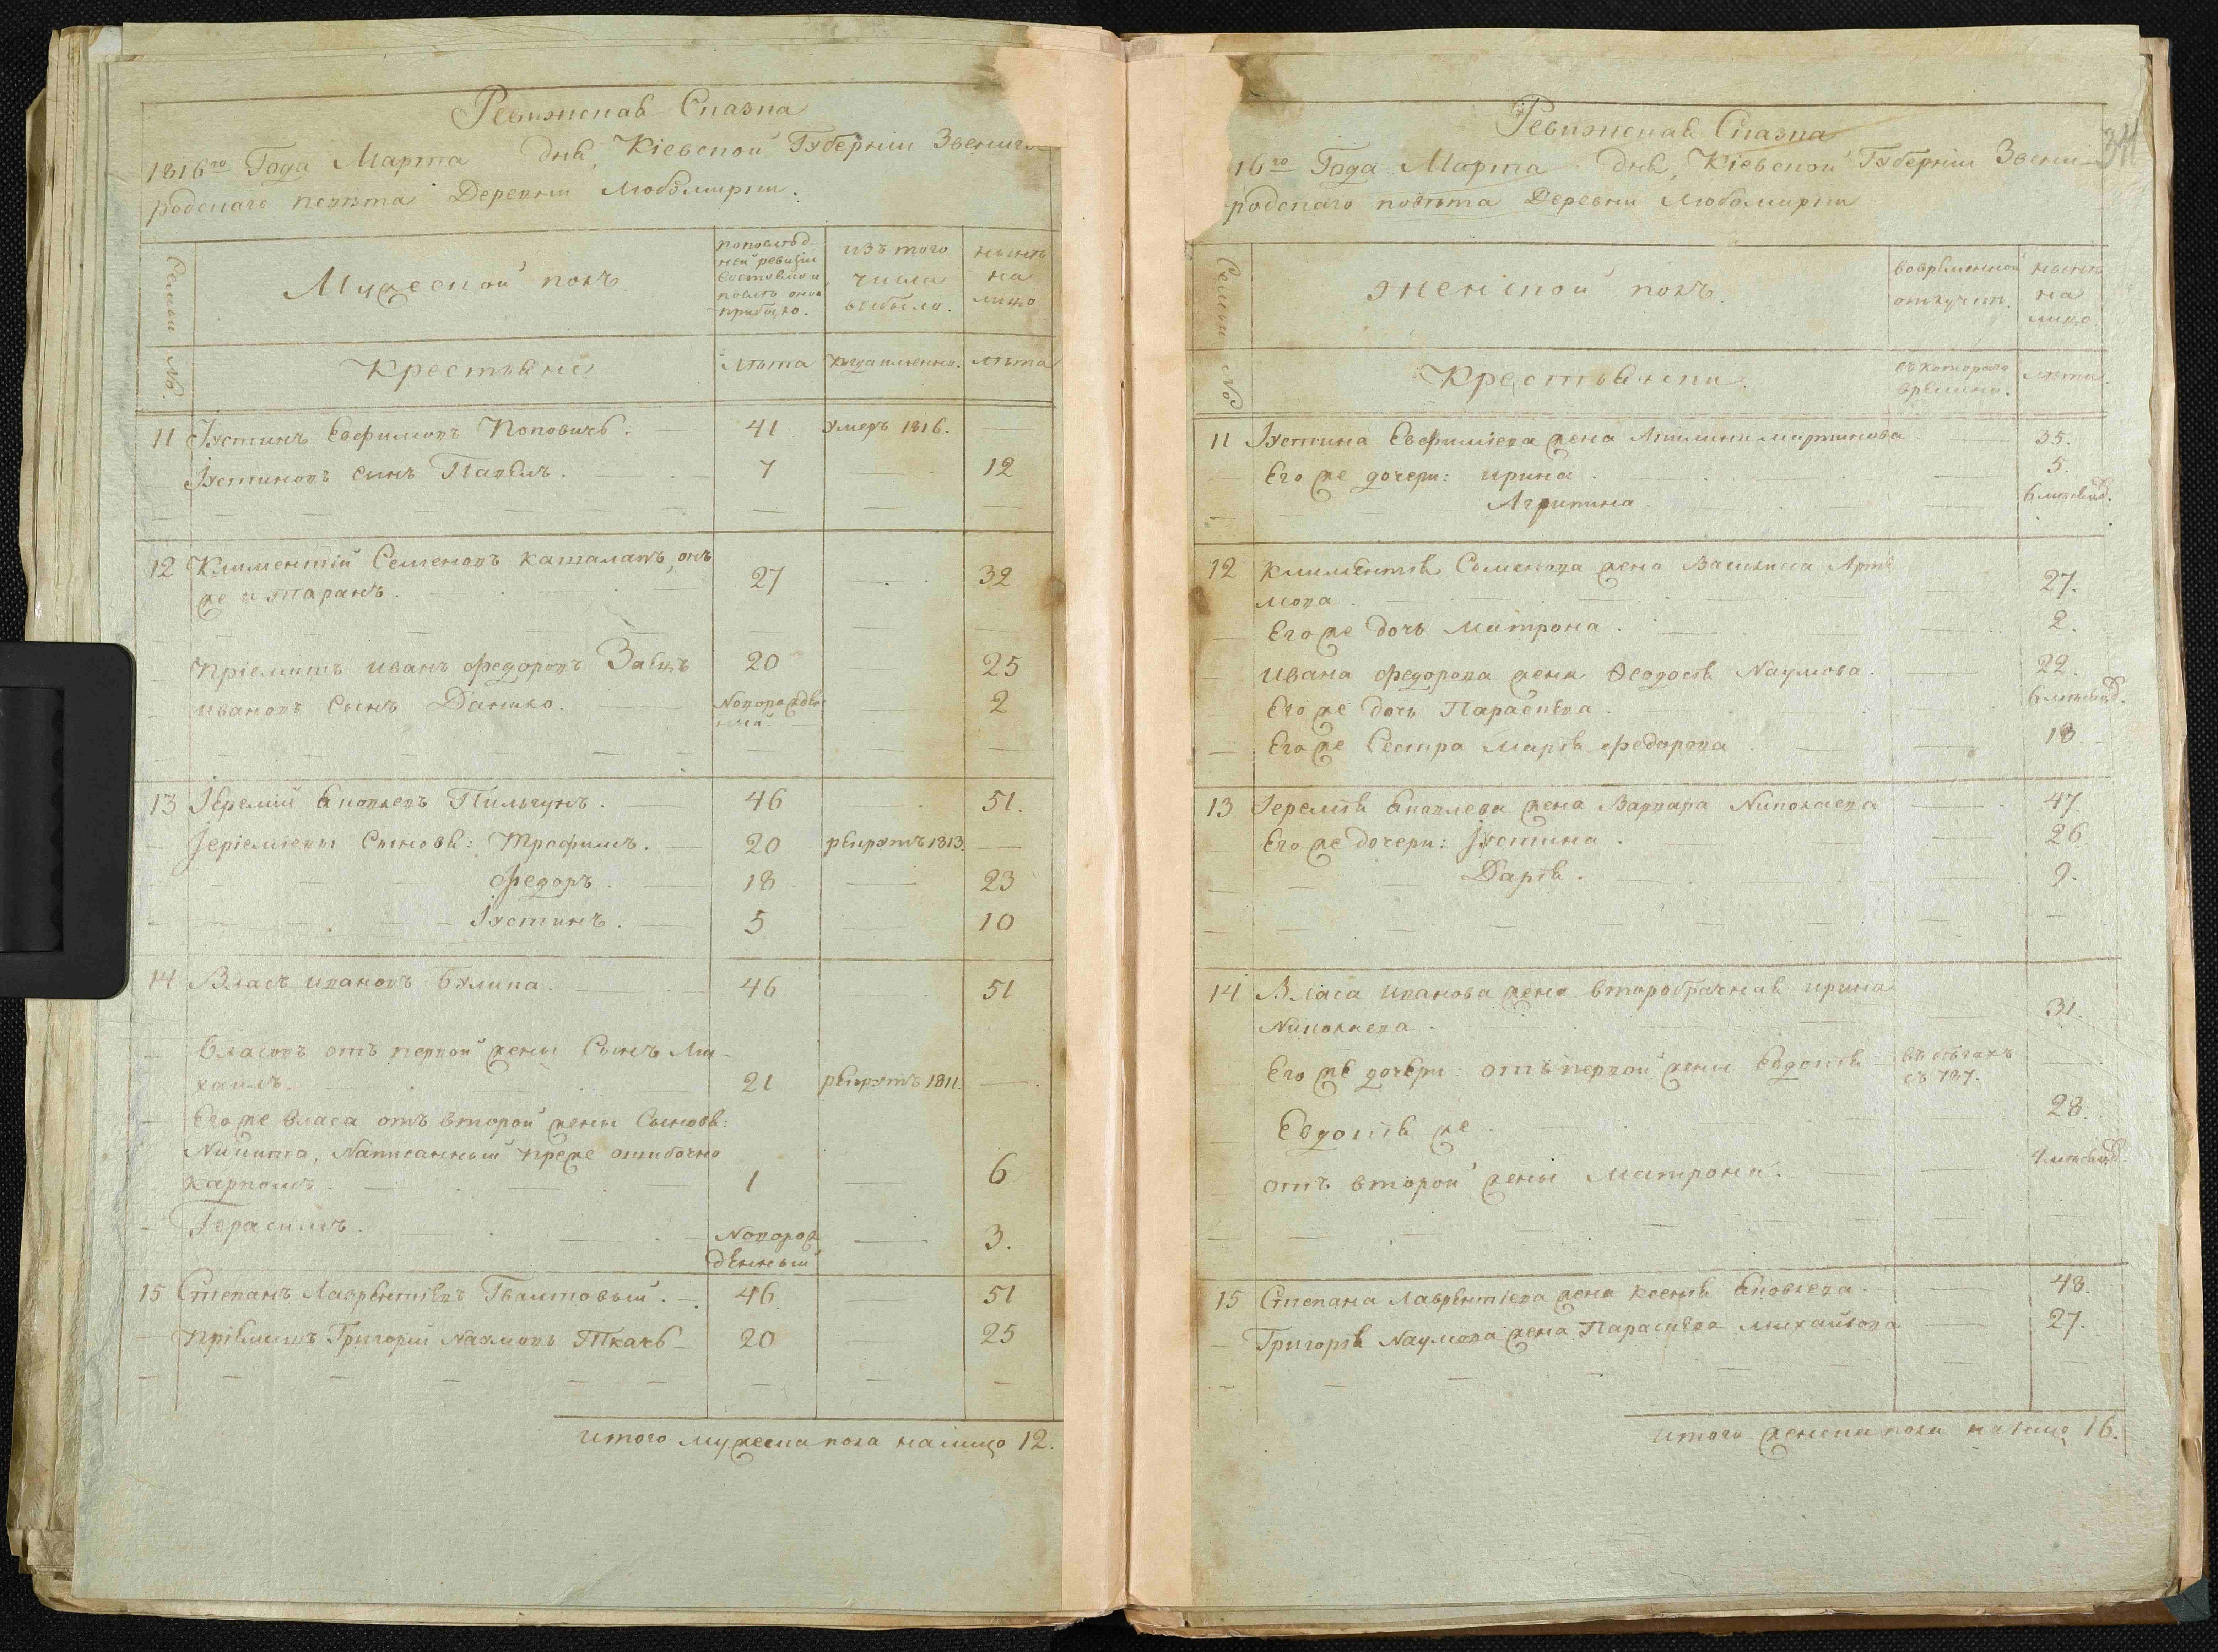 Ревижская Сказка
1816го Года Марта дня, Кіевской Губерніи Звениго-
родскаго повѣта Деревни Любомирки.
Семьи №
Мужеской полъ
по послѣд-
ней ревизіи
состояло и
послѣ оной
прибыло.
изъ того
числа
выбыло.
нынѣ
на
лицо
Крестьяне
лѣта
когда именно.
лѣта
11 Іустинъ Евфимовъ Поповичъ. 41 умеръ 1816. —
Іустиновъ сынъ Павелъ. 7 — 12
12 Климентій Семеновъ каталапъ, онъ
же и Таранъ. 27 — 32
Пріемышъ иванъ Федоровъ Заецъ 20 — 25
ивановъ Сынъ Данило. Новорожден
ный. — 2
13 Іеремій Яковлевъ Пильгунъ. 46 51.
Іереміевы Сыновя: Трофимъ. 20 рекрутъ 1813. —
Федоръ. 18 — 23
Іустинъ. 5 — 10
14 Власъ ивановъ булика. 46 51
Власовъ отъ первой жены Сынъ Ми-
хаилъ. 21 рекрутъ 1811. —
Его же власа отъ второй жены Сыновя:
Никита, Написанный преже ошибочно
карпомъ. 1 — 6
Герасимъ.Новорож
денный — 3.
15 Степанъ Лаврентіевъ Гвалтовый. 46 — 51
Пріемышъ Григорій Наумовъ Ткачъ 20 — 25
итого мужеска пола налицо 12.
Ревижская Сказка
16го Года Марта дня, Кіевской Губерніи Звени-
родскаго повѣта Деревни Любомирки
311
Семьи №
Женской полъ.
во временной
отлучкѣ.
нынѣ
на
лицо.
Крестьянки.
съ котораго
времени.
лѣта.
11 Іустина Евфиміева жена Акилина мартинова 35.
Его же дочери: ирина. 5.
Агрипина. 6 мѣсяцъ.
12 климентія Семенова жена Василиса Артѣ
мова. 27.
Его же дочь Матрона. 2.
ивана Федорова жена Ѳеодосія Наумова. 22.
Его же дочь Параскева. 6 мѣсяцъ.
Его же Сестра Марія Федорова. 18
13 Іеремія Яковлева жена Варвара Николаева 47.
Его же дочери: Іустина. 26.
Дарія. 9.
14 Власа иванова жена второбрачная ирина
Николаева. 31.
Его же дочери: отъ первой жены Евдокія въ бѣгахъ
съ 787. —
Евдокія же. 28.
отъ второй жены Матрона. 4 мѣсяцъ.
15 Степана Лаврентіева жена ксенія Яковлева. 48.
Григорія Наумова жена Параскева михайлова 27.
итого женска пола налицо 16.